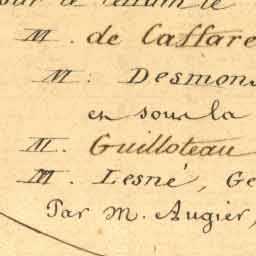 M. de Caffare
M. Desmons
en sous la
M. Guilloteau
M. Lesné, Ge
Par M. Augier,